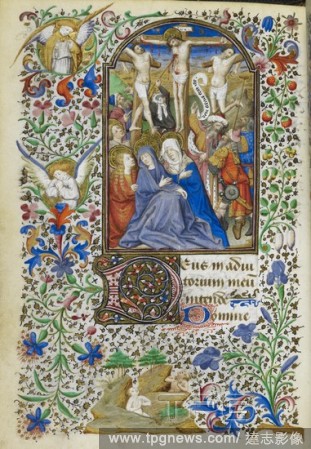 Deus in adiu
torium meu
intende
Domine
www.tpgnews.com/達志影像